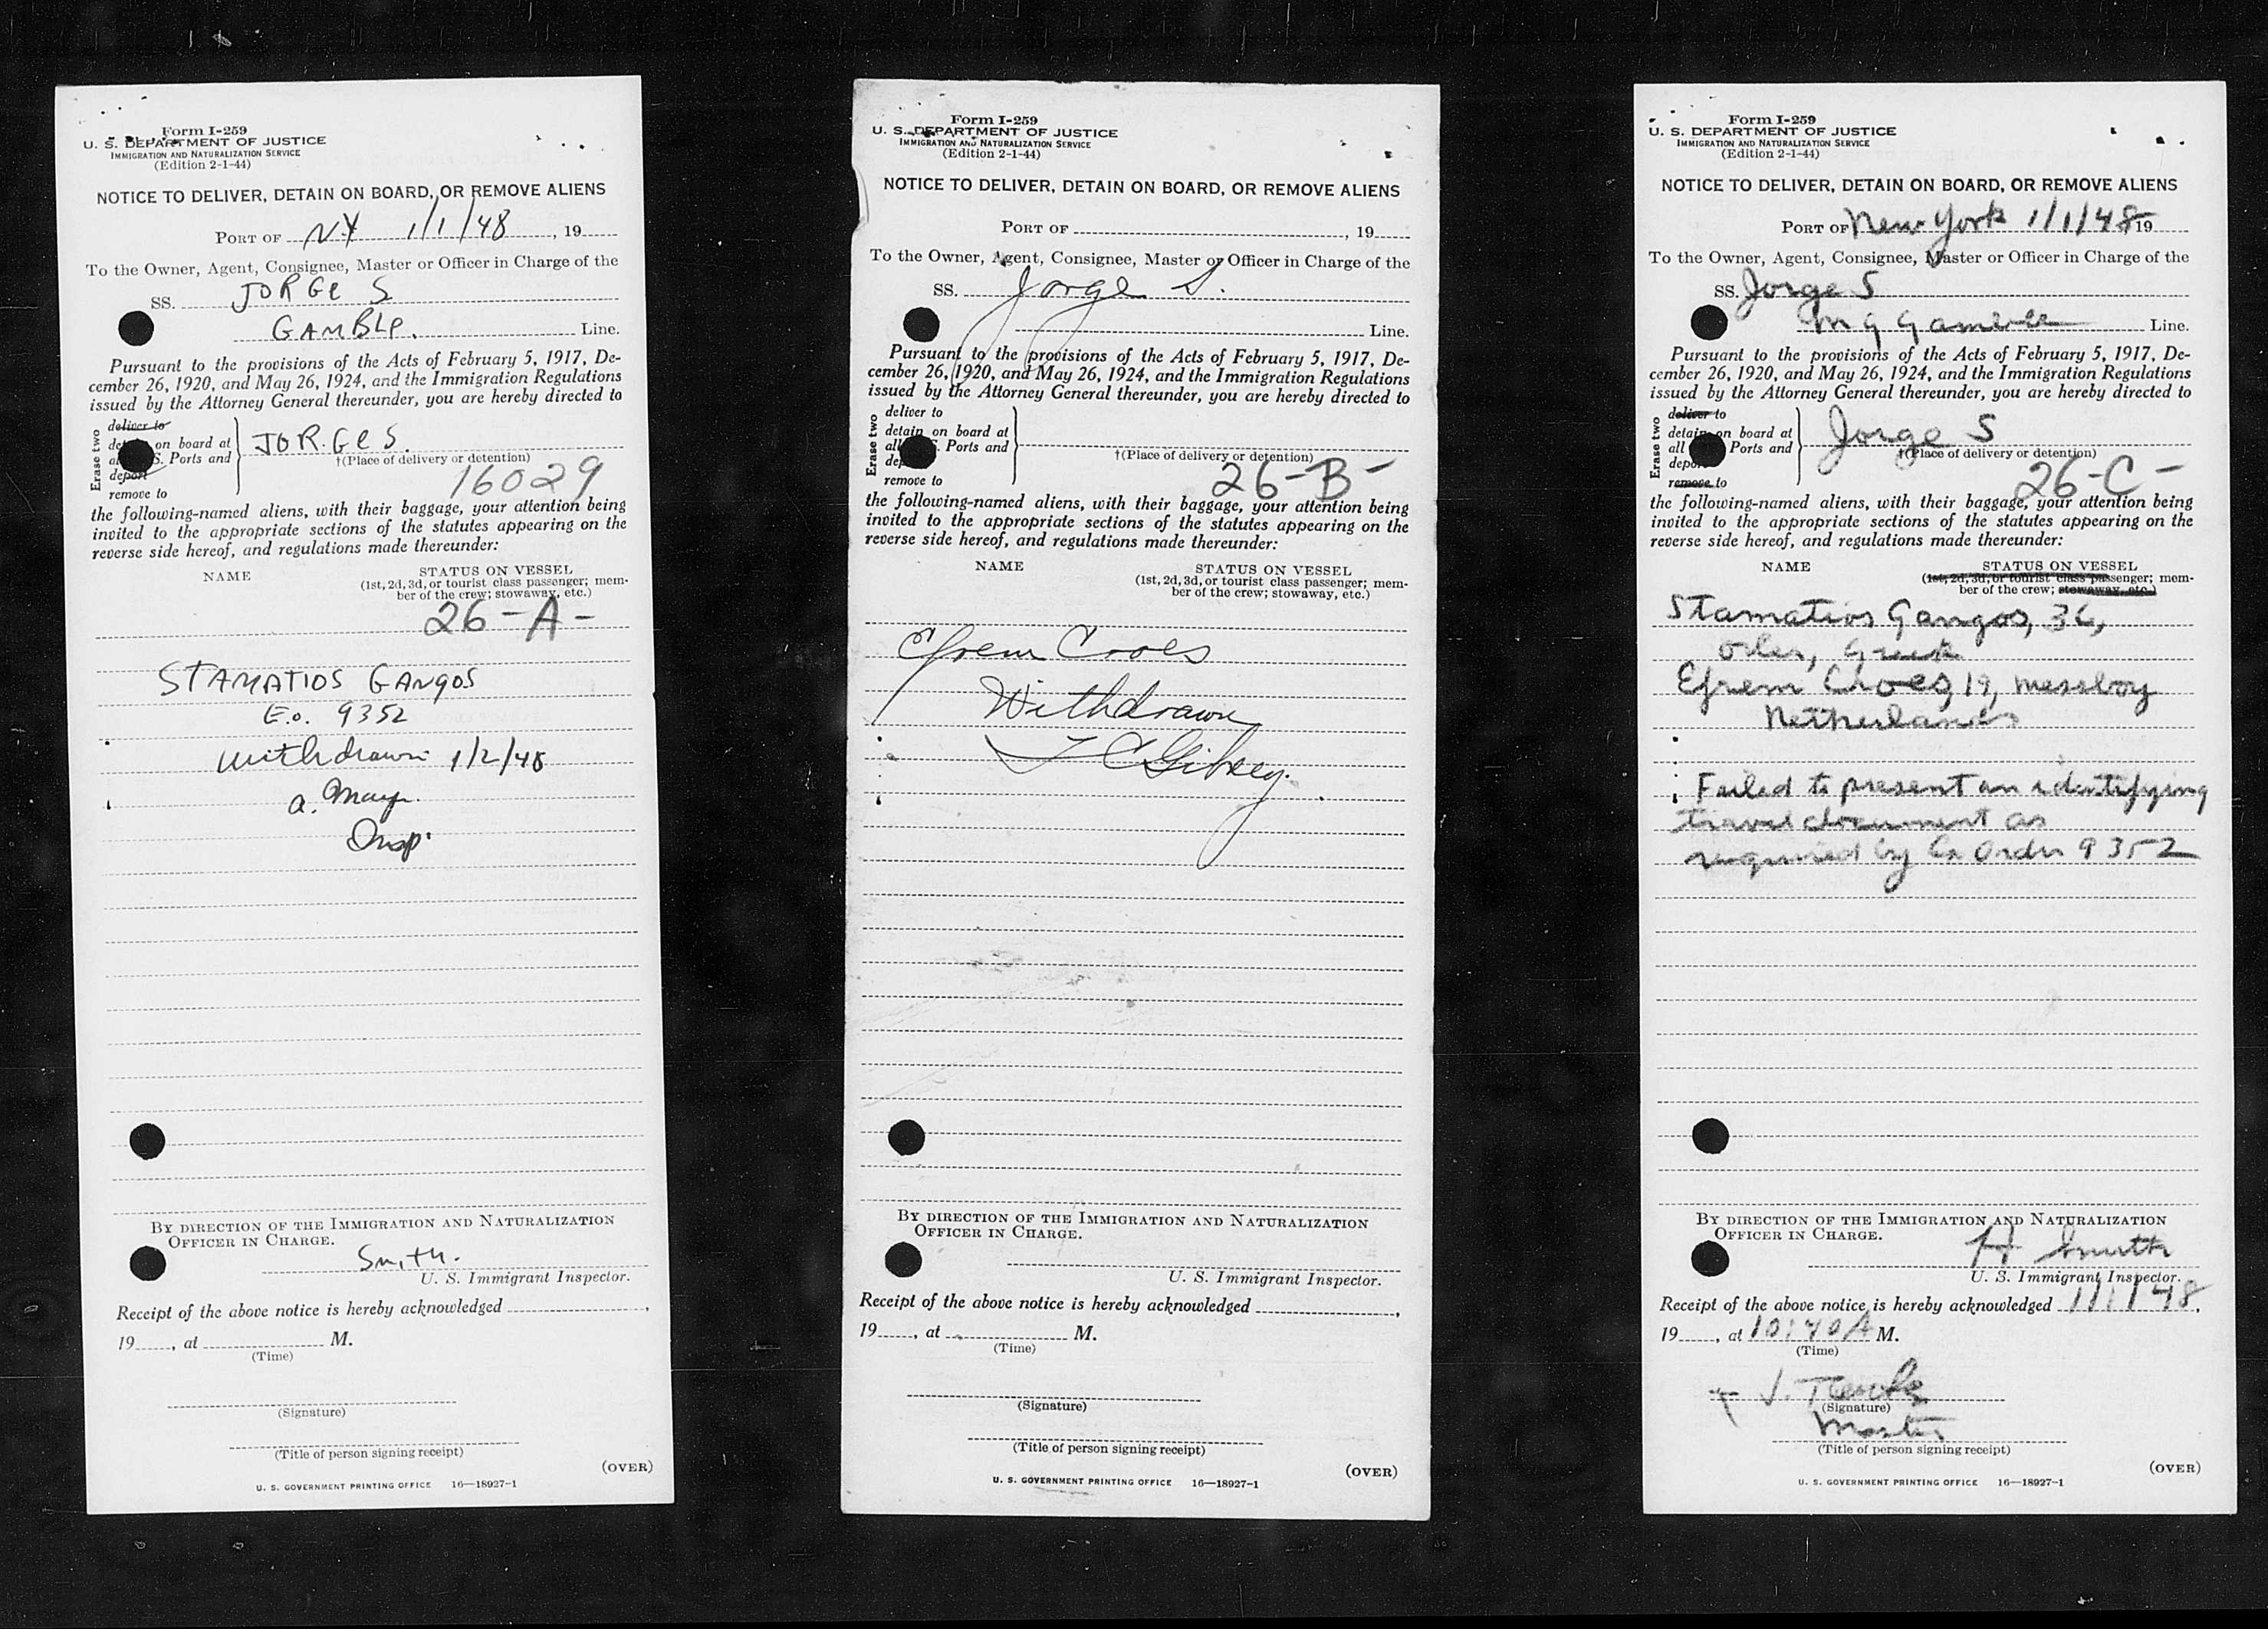 Form I-259
U. S. DEPARTMENT OF JUSTICE
IMMIGRATION AND NATURALIZATION SERVICE
(Edition 2-1-44)
NOTICE TO DELIVER, DETAIN ON BOARD, OR REMOVE ALIENS
PORT OF NY 1/1/48, 19
To the Owner, Agent, Consignee, Master or Officer in Charge of the
SS. JORGE S
GAMBLE. Line.
Pursuant to the provisions of the Acts of February 5, 1917, De-
cember 26, 1920, and May 26, 1924, and the Immigration Regulations
issued by the Attorney General thereunder, you are hereby directed to
Erase two
deliver to
on board at
S. Ports and
deport
remove to
JORGE S.
†(Place of delivery or detention)
16029
the following-named aliens, with their baggage, your attention being
invited to the appropriate sections of the statutes appearing on the
reverse side hereof, and regulations made thereunder:
NAME STATUS ON VESSEL
(1st, 2d, 3d, or tourist class passenger; mem-
ber of the crew; stowaway, etc.)
26-A-
STAMATIOS GANGOS
E.O. 9352
Withdrawn 1/2/48
a. Mayr.
Insp.
BY DIRECTION OF THE IMMIGRATION AND NATURALIZATION
OFFICER IN CHARGE.
Smith.
U. S. Immigrant Inspector.
Receipt of the above notice is hereby acknowledged ,
19 , at M.
(Time)
(Signature)
(Title of person signing receipt)
(OVER)
U. S. GOVERNMENT PRINTING OFFICE 16—18927-1
Form I-259
U. S. DEPARTMENT OF JUSTICE
IMMIGRATION AND NATURALIZATION SERVICE
(Edition 2-1-44)
NOTICE TO DELIVER, DETAIN ON BOARD, OR REMOVE ALIENS
PORT OF , 19
To the Owner, Agent, Consignee, Master or Officer in Charge of the
SS. Jorge S.
Line.
Pursuant to the provisions of the Acts of February 5, 1917, De-
cember 26, 1920, and May 26, 1924, and the Immigration Regulations
issued by the Attorney General thereunder, you are hereby directed to
Erase two
deliver to
detain on board at
all S. Ports and
remove to
†(Place of delivery or detention)
26-B-
the following-named aliens, with their baggage, your attention being
invited to the appropriate sections of the statutes appearing on the
reverse side hereof, and regulations made thereunder:
NAME STATUS ON VESSEL
(1st, 2d, 3d, or tourist class passenger; mem-
ber of the crew; stowaway, etc.)
Efrem Croes
Withdrawn
BY DIRECTION OF THE IMMIGRATION AND NATURALIZATION
OFFICER IN CHARGE.
U. S. Immigrant Inspector.
Receipt of the above notice is hereby acknowledged ,
19 , at M.
(Time)
(Signature)
(Title of person signing receipt)
(OVER)
U. S. GOVERNMENT PRINTING OFFICE 16—18927-1
Form I-259
U. S. DEPARTMENT OF JUSTICE
IMMIGRATION AND NATURALIZATION SERVICE
(Edition 2-1-44)
NOTICE TO DELIVER, DETAIN ON BOARD, OR REMOVE ALIENS
PORT OF New York 1/1/48 19
To the Owner, Agent, Consignee, Master or Officer in Charge of the
SS. Jorge S
Line.
Pursuant to the provisions of the Acts of February 5, 1917, De-
cember 26, 1920, and May 26, 1924, and the Immigration Regulations
issued by the Attorney General thereunder, you are hereby directed to
Erase two
deliver to
detain on board at
all Ports and
remove to
Jorge S
†(Place of delivery or detention)
26-C-
the following-named aliens, with their baggage, your attention being
invited to the appropriate sections of the statutes appearing on the
reverse side hereof, and regulations made thereunder:
NAME STATUS ON VESSEL
(1st, 2d, 3d, or tourist class passenger; mem-
ber of the crew; stowaway, etc.)
Stamatios Gangos, 36,
Oiler, Greek
Efrem Croes, 19, messboy
Netherlands
Failed to present an identifying
travel document as
required by Ex Order 9352
BY DIRECTION OF THE IMMIGRATION AND NATURALIZATION
OFFICER IN CHARGE.
H Smith
U. S. Immigrant Inspector.
Receipt of the above notice is hereby acknowledged 1/1/48,
19 , at 10:40 A M.
(Time)
(Signature)
Master
(Title of person signing receipt)
(OVER)
U. S. GOVERNMENT PRINTING OFFICE 16—18927-1